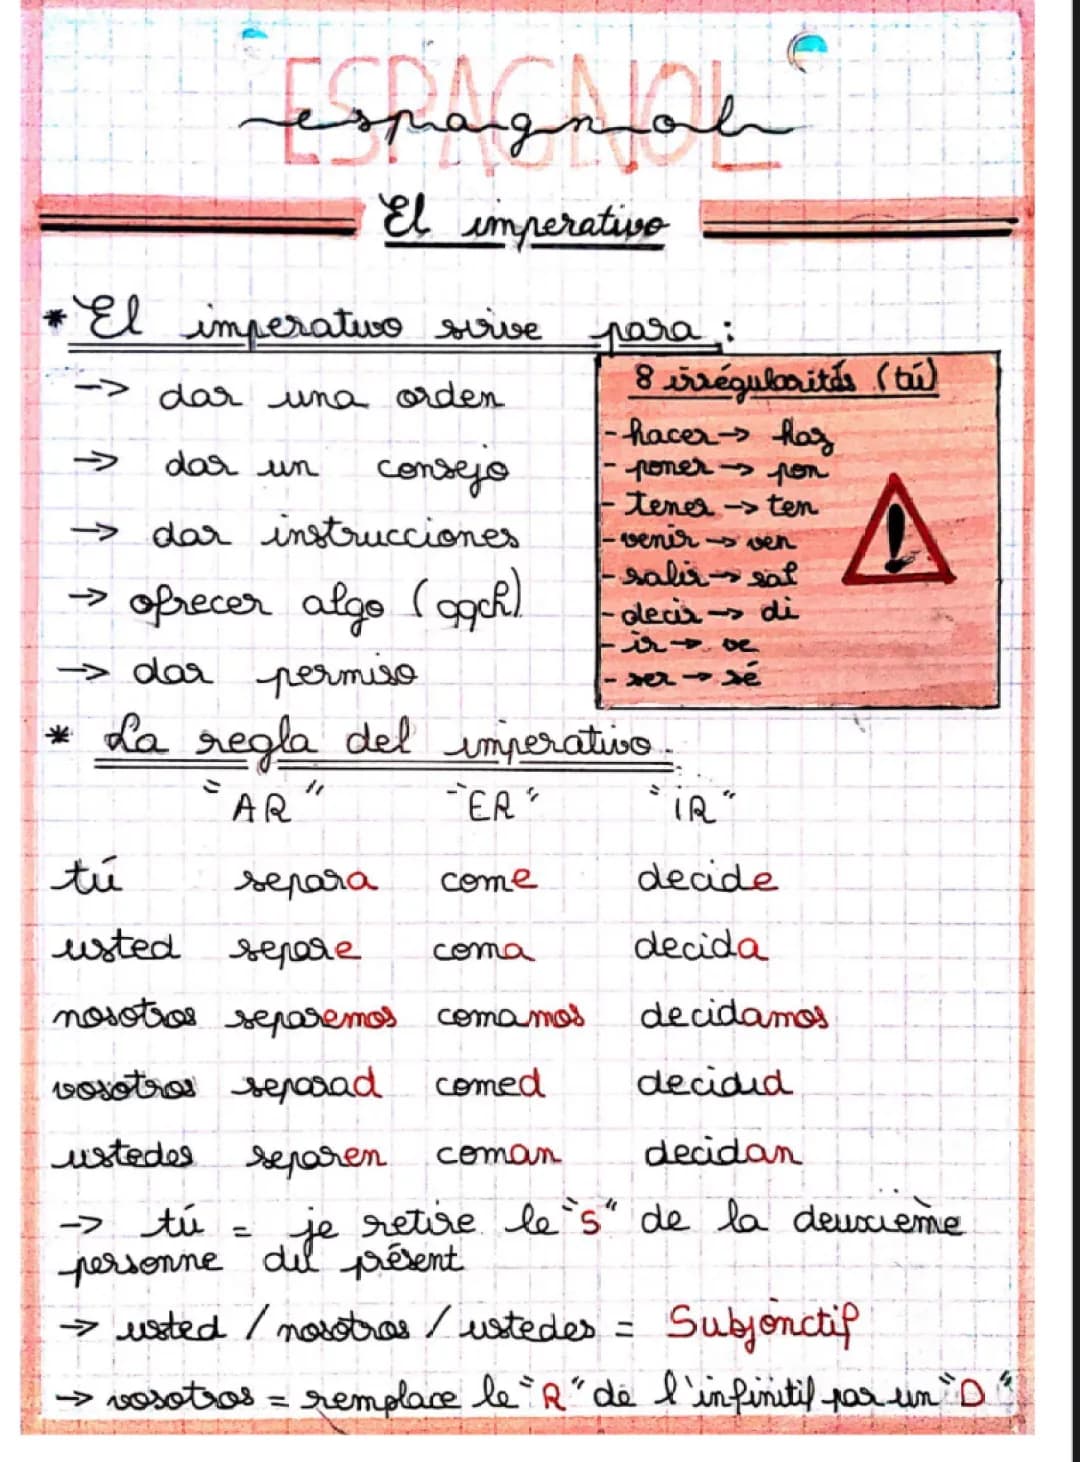 ESPAGNOL
espagnol
El imperativo
* El imperativo sirve para :
-> dar una orden
-> dar un consejo
-> dar instrucciones
-> ofrecer algo (qqch)
-> dar permiso
8 irrégularités (tú)
- hacer -> haz
- poner -> pon
- tener -> ten
- venir -> ven
- salir -> sal
- decir -> di
- ir -> ve
- ser -> sé
!
* La regla del imperativo.
"AR" "ER" "iR"
tú separa come decide
usted separe coma decida
nosotros separemos comamos decidamos
vosotros separad comed decidid
ustedes separen coman decidan
-> tú = je retire le "s" de la deuxième
personne du présent
-> usted / nosotros / ustedes = Subjonctif
-> vosotros = remplace le "R" de l'infinitif par un "D"